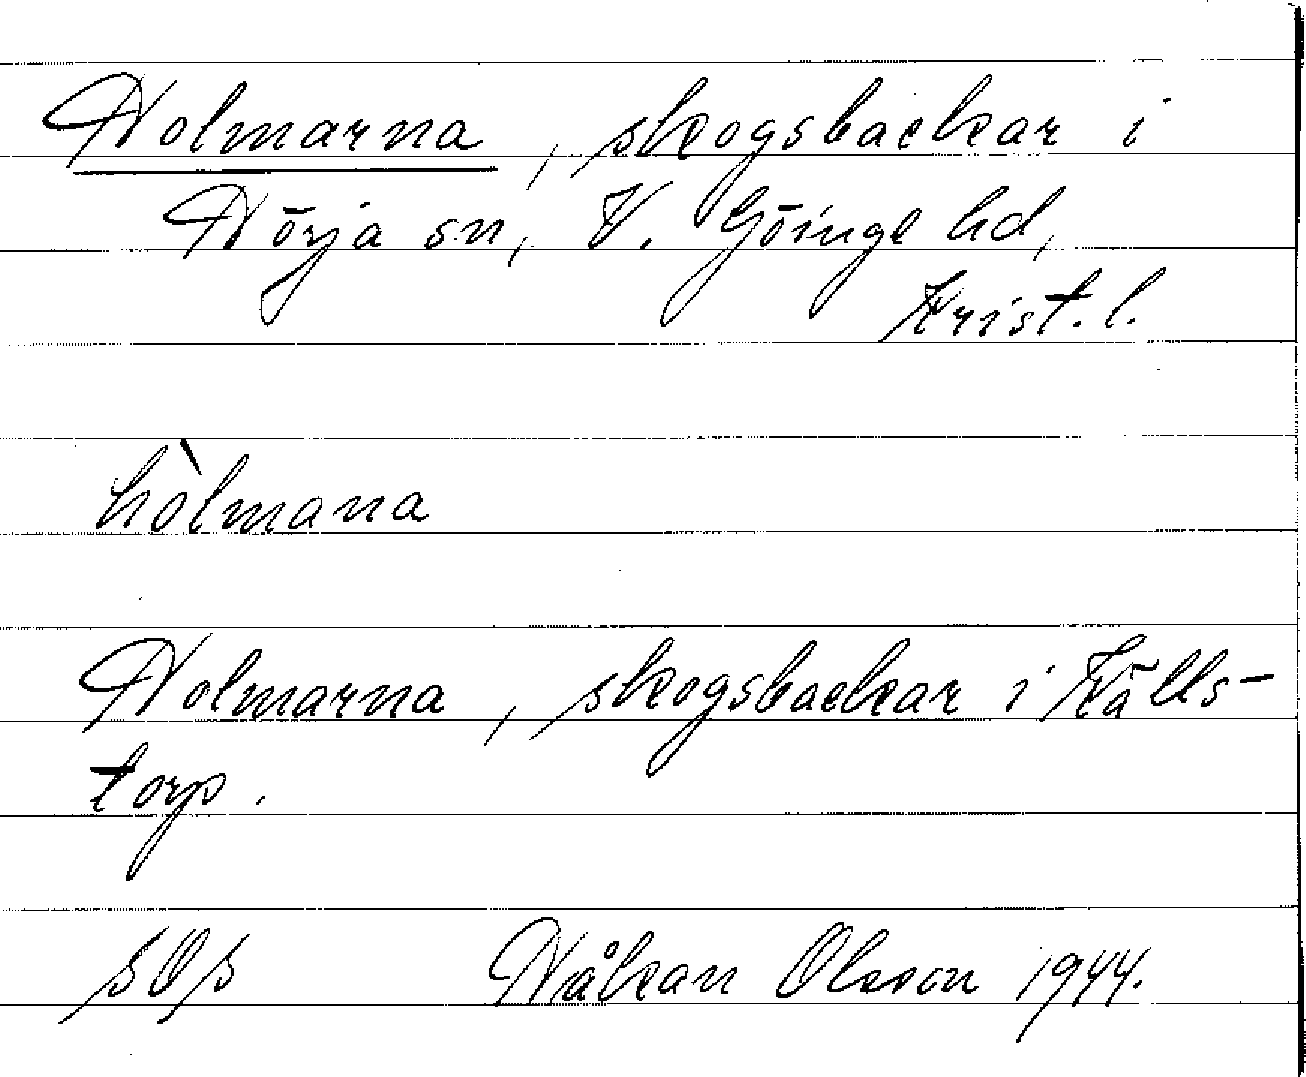 Holmarna, skogsbackar i
Hörja sn, V. Göinge hd,
Krist. l.
hòlmana
Holmarna, skogsbackar i Källs-
torp.
Håkan Olsson 1944.